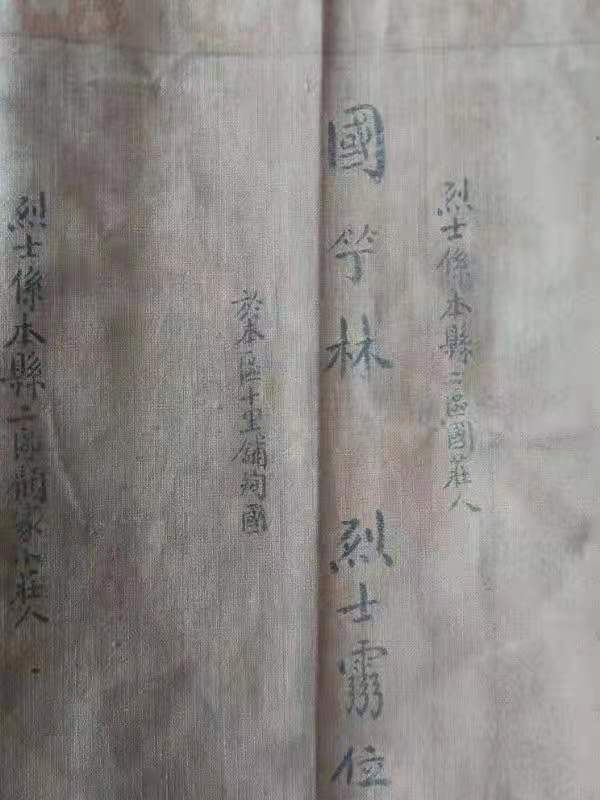 烈士係本縣二區國莊人
國竽林 烈士霛位
於本區十里舖殉國
烈士係本縣二區顧家小莊人